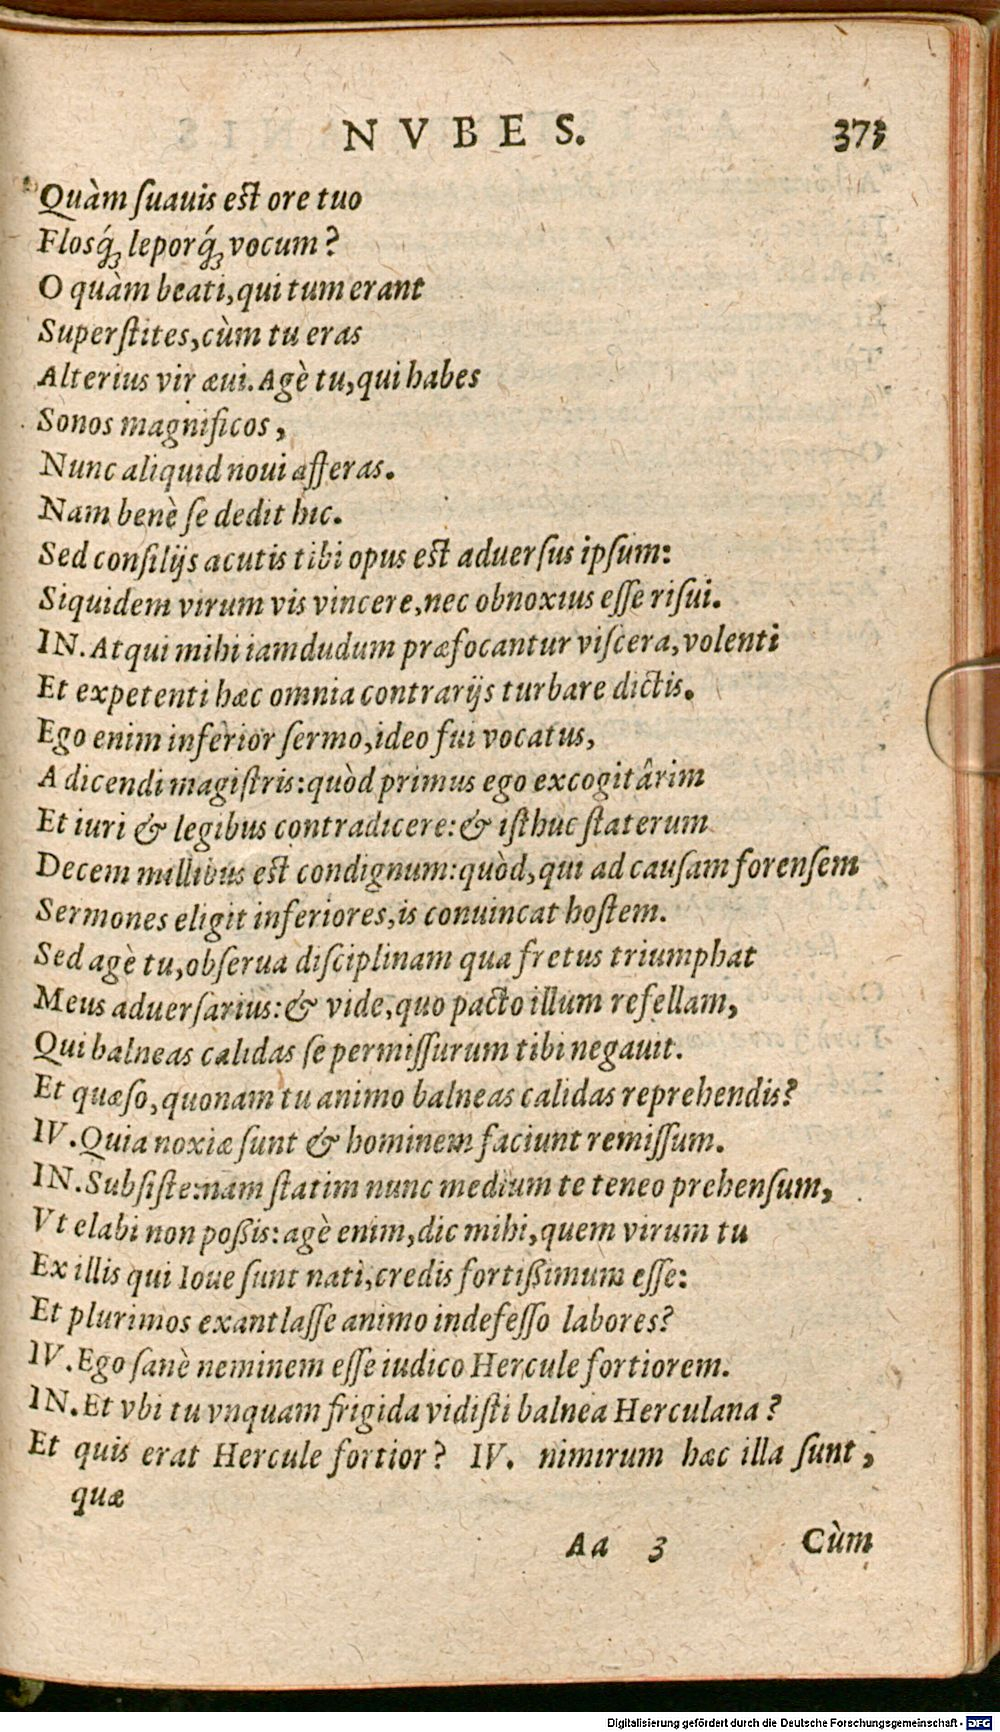 NVBES. 373
Quàm ſuauis est ore tuo
Flosq́ꝫ leporq́ꝫ vocum?
O quàm beati, qui tum erant
Superſtites, cùm tu eras
Alterius vir æui. Agè tu, qui habes
Sonos magnificos,
Nunc aliquid noui afferas.
Nam benè ſe dedit hic.
Sed conſilijs acutis tibi opus est aduerſus ipſum:
Siquidem virum vis vincere, nec obnoxius eſſe riſui.
IN. Atqui mihi iamdudum præfocantur viſcera, volenti
Et expetenti hæc omnia contrarijs turbare dictis.
Ego enim inferior ſermo, ideo fui vocatus,
A dicendi magiſtris: quòd primus ego excogitârim
Et iuri & legibus contradicere: & iſthuc ſtaterum
Decem millibus est condignum: quòd, qui ad cauſam forenſem
Sermones eligit inferiores, is conuincat hoſtem.
Sed agè tu, obſerua diſciplinam qua fretus triumphat
Meus aduerſarius: & vide, quo pacto illum refellam,
Qui balneas calidas ſe permiſſurum tibi negauit.
Et quæſo, quonam tu animo balneas calidas reprehendis?
IV. Quia noxiæ ſunt & hominem faciunt remiſſum.
IN. Subſiſte: nam ſtatim nunc medium te teneo prehenſum,
Vt elabi non poßis: agè enim, dic mihi, quem virum tu
Ex illis qui Ioue ſunt nati, credis fortißimum eſſe:
Et plurimos exantlaſſe animo indefeſſo labores?
IV. Ego ſanè neminem eſſe iudico Hercule fortiorem.
IN. Et vbi tu vnquam frigida vidiſti balnea Herculana?
Et quis erat Hercule fortior? IV. nimirum hæc illa ſunt,
quæ
Aa 3 Cùm
Digitalisierung gefördert durch die Deutsche Forschungsgemeinschaft - DFG